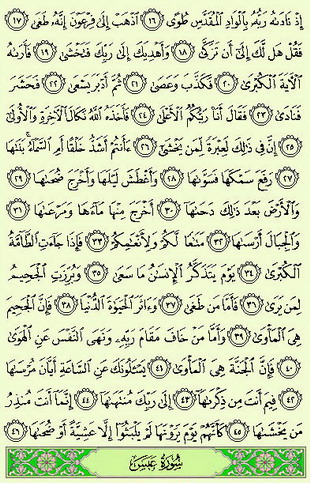 إِذْ نَادَىٰهُ رَبُّهُۥ بِٱلْوَادِ ٱلْمُقَدَّسِ طُوًى ١٦ ٱذْهَبْ إِلَىٰ فِرْعَوْنَ إِنَّهُۥ طَغَىٰ ١٧
فَقُلْ هَل لَّكَ إِلَىٰٓ أَن تَزَكَّىٰ ١٨ وَأَهْدِيَكَ إِلَىٰ رَبِّكَ فَتَخْشَىٰ ١٩ فَأَرَىٰهُ
ٱلْءَايَةَ ٱلْكُبْرَىٰ ٢٠ فَكَذَّبَ وَعَصَىٰ ٢١ ثُمَّ أَدْبَرَ يَسْعَىٰ ٢٢ فَحَشَرَ
فَنَادَىٰ ٢٣ فَقَالَ أَنَا۠ رَبُّكُمُ ٱلْأَعْلَىٰ ٢٤ فَأَخَذَهُ ٱللَّهُ نَكَالَ ٱلْءَاخِرَةِ وَٱلْأُولَىٰٓ
٢٥ إِنَّ فِى ذَٰلِكَ لَعِبْرَةً لِّمَن يَخْشَىٰٓ ٢٦ ءَأَنتُمْ أَشَدُّ خَلْقًا أَمِ ٱلسَّمَآءُ ۚ بَنَىٰهَا
٢٧ رَفَعَ سَمْكَهَا فَسَوَّىٰهَا ٢٨ وَأَغْطَشَ لَيْلَهَا وَأَخْرَجَ ضُحَىٰهَا ٢٩
وَٱلْأَرْضَ بَعْدَ ذَٰلِكَ دَحَىٰهَآ ٣٠ أَخْرَجَ مِنْهَا مَآءَهَا وَمَرْعَىٰهَا ٣١
وَٱلْجِبَالَ أَرْسَىٰهَا ٣٢ مَتَٰعًا لَّكُمْ وَلِأَنْعَٰمِكُمْ ٣٣ فَإِذَا جَآءَتِ ٱلطَّآمَّةُ
ٱلْكُبْرَىٰ ٣٤ يَوْمَ يَتَذَكَّرُ ٱلْإِنسَٰنُ مَا سَعَىٰ ٣٥ وَبُرِّزَتِ ٱلْجَحِيمُ
لِمَن يَرَىٰ ٣٦ فَأَمَّا مَن طَغَىٰ ٣٧ وَءَاثَرَ ٱلْحَيَوٰةَ ٱلدُّنْيَا ٣٨ فَإِنَّ ٱلْجَحِيمَ
هِىَ ٱلْمَأْوَىٰ ٣٩ وَأَمَّا مَنْ خَافَ مَقَامَ رَبِّهِۦ وَنَهَى ٱلنَّفْسَ عَنِ ٱلْهَوَىٰ
٤٠ فَإِنَّ ٱلْجَنَّةَ هِىَ ٱلْمَأْوَىٰ ٤١ يَسْـَٔلُونَكَ عَنِ ٱلسَّاعَةِ أَيَّانَ مُرْسَىٰهَا
٤٢ فِيمَ أَنتَ مِن ذِكْرَىٰهَآ ٤٣ إِلَىٰ رَبِّكَ مُنتَهَىٰهَآ ٤٤ إِنَّمَآ أَنتَ مُنذِرُ
مَن يَخْشَىٰهَا ٤٥ كَأَنَّهُمْ يَوْمَ يَرَوْنَهَا لَمْ يَلْبَثُوٓا۟ إِلَّا عَشِيَّةً أَوْ ضُحَىٰهَا ٤٦
سُورَةُ عَبَسَ